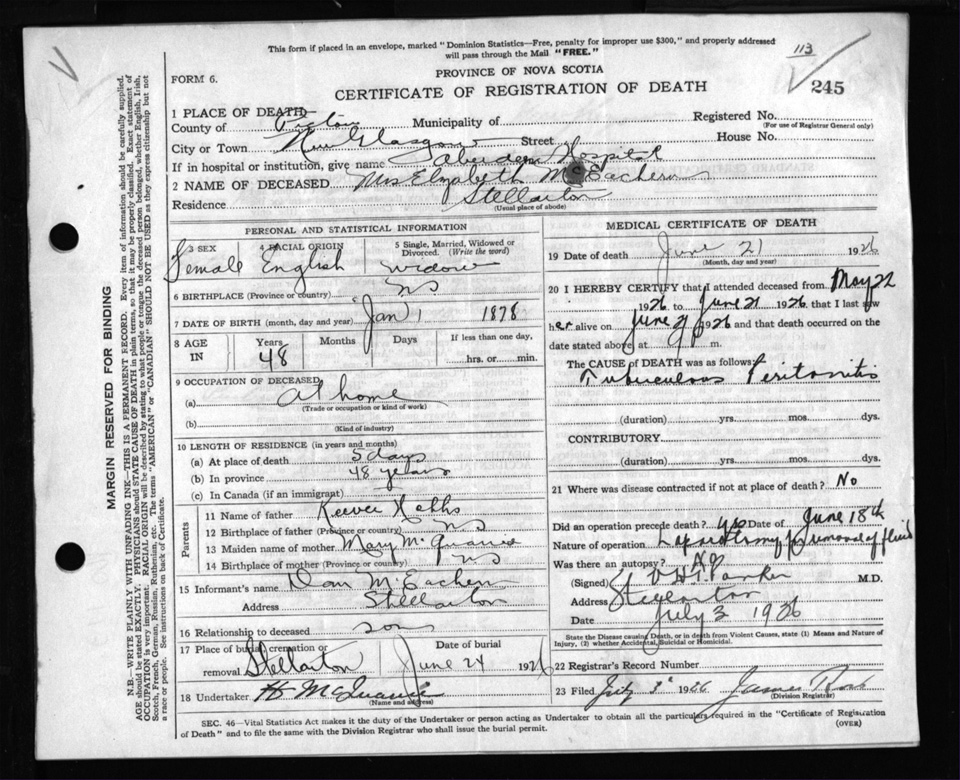 This form if placed in an envelope, marked "Dominion Statistics—Free, penalty for improper use $300," and properly addressed
will pass through the Mail "FREE."
113
FORM 6.
PROVINCE OF NOVA SCOTIA
CERTIFICATE OF REGISTRATION OF DEATH
245
1 PLACE OF DEATH
County of Pictou Municipality of Registered No.
(For use of Registrar General only)
City or Town New Glasgow Street House No.
If in hospital or institution, give name Aberdeen Hospital
2 NAME OF DECEASED Mrs Elizabeth McEachern
Residence Stellarton
(Usual place of abode)
PERSONAL AND STATISTICAL INFORMATION
3 SEX 4 RACIAL ORIGIN 5 Single, Married, Widowed or Divorced. (Write the word)
Female English widow
6 BIRTHPLACE (Province or country) NS
7 DATE OF BIRTH (month, day and year) Jan 1 1878
8 AGE IN Years Months Days If less than one day,
48 hrs. or min.
9 OCCUPATION OF DECEASED
(a) At home
(Trade or occupation or kind of work)
(b)
(Kind of industry)
10 LENGTH OF RESIDENCE (in years and months)
(a) At place of death 5 days
(b) In province 48 years
(c) In Canada (if an immigrant)
Parents
11 Name of father
12 Birthplace of father (Province or country) NS
13 Maiden name of mother Mary McQuarrie
14 Birthplace of mother (Province or country) NS
15 Informant's name Dan McEachern
Address Stellarton
16 Relationship to deceased son
17 Place of burial, cremation or Date of burial
removal Stellarton June 24 1926
18 Undertaker H McQuarrie
(Name and address)
MEDICAL CERTIFICATE OF DEATH
19 Date of death June 21 1926
(Month, day and year)
20 I HEREBY CERTIFY that I attended deceased from May 22
1926 to June 21 1926 that I last saw
her alive on June 21 1926 and that death occurred on
date stated above, at 9 P m.
The CAUSE OF DEATH was as follows:
Tuberculous Peritonitis
(duration) yrs. mos. dys.
CONTRIBUTORY
(duration) yrs. mos. dys.
21 Where was disease contracted if not at place of death? No
Did an operation precede death? yes Date of June 18th
Nature of operation Laparotomy removal of fluid
Was there an autopsy? No
(Signed) Parker M.D.
Address Stellarton
Date July 3 1926
State the Disease causing Death, or in death from Violent Causes, state (1) Means and Nature of
Injury, (2) whether Accidental, Suicidal or Homicidal.
22 Registrar's Record Number
23 Filed July 3 1926 James
(Division Registrar)
SEC. 46—Vital Statistics Act makes it the duty of the Undertaker or person acting as Undertaker to obtain all the particulars required in the "Certificate of Registration
of Death" and to file the same with the Division Registrar who shall issue the burial permit. (OVER)
MARGIN RESERVED FOR BINDING
N.B.—WRITE PLAINLY WITH UNFADING INK—THIS IS A PERMANENT RECORD. Every item of information should be carefully supplied.
AGE should be stated EXACTLY. PHYSICIANS should STATE CAUSE OF DEATH in plain terms, so that it may be properly classified. Exact statement of
OCCUPATION is very important. RACIAL ORIGIN will be described by stating to what people or tongue the deceased person belonged, whether English, Irish,
Scotch, French, German, Russian, Ruthenian, etc. The terms "AMERICAN" or "CANADIAN" SHOULD NOT BE USED as they express citizenship but not
a race or people. See instructions on back of Certificate.